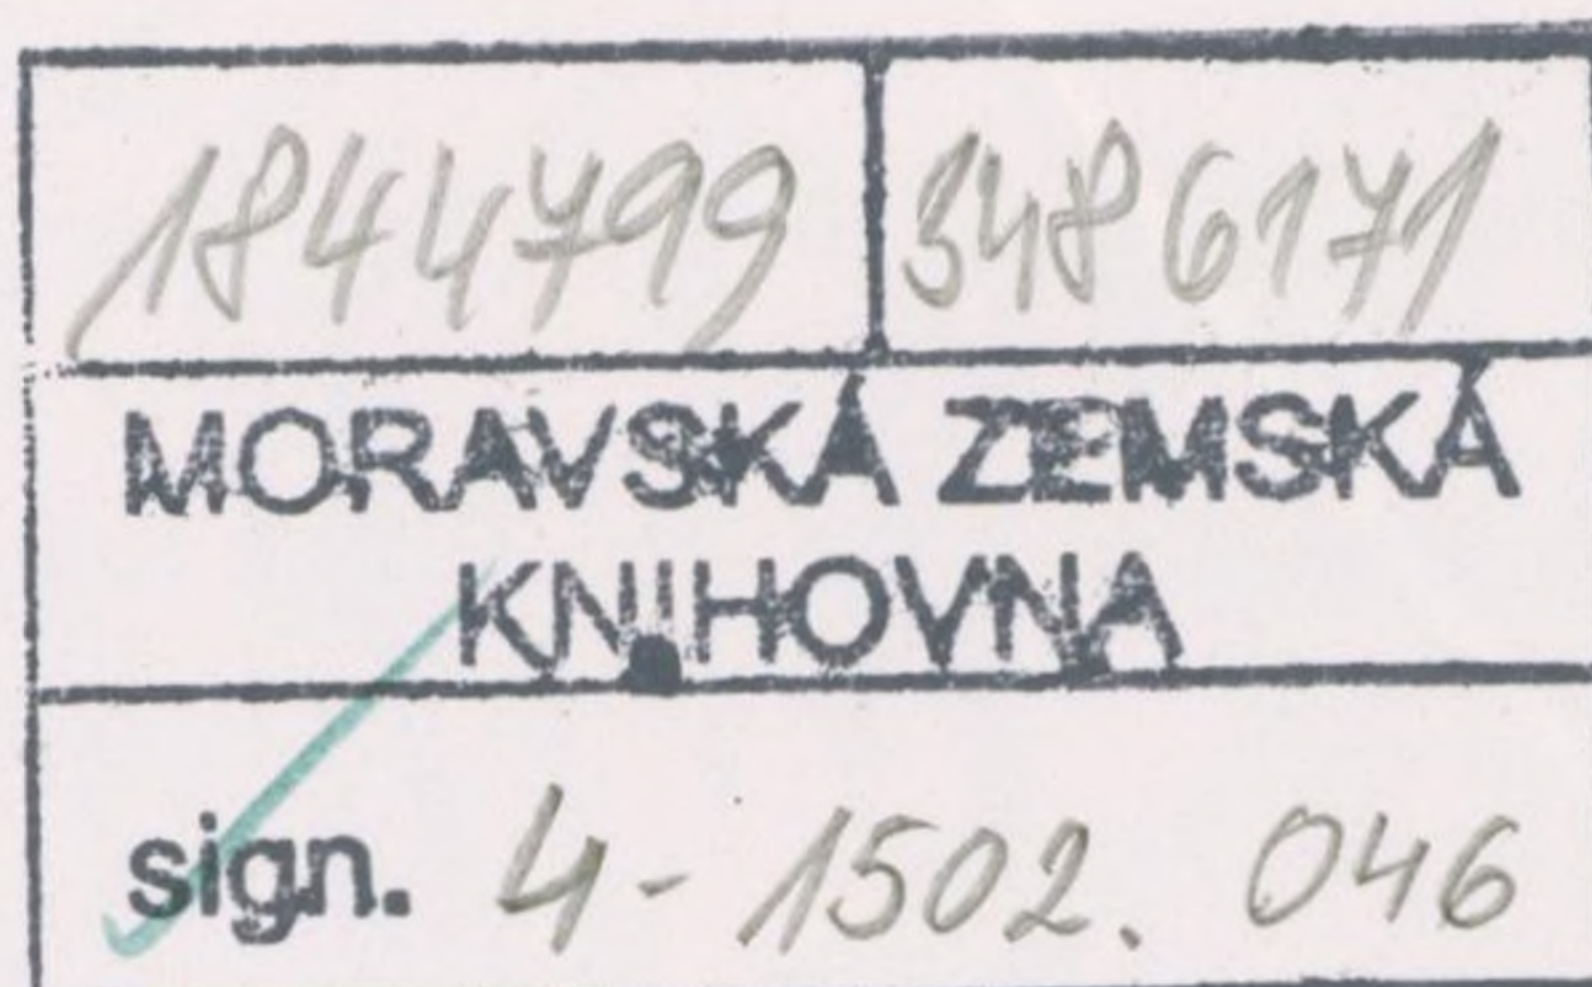 1844799 3486171
MORAVSKÁ ZEMSKÁ
KNIHOVNA
sign. 4-1502.046